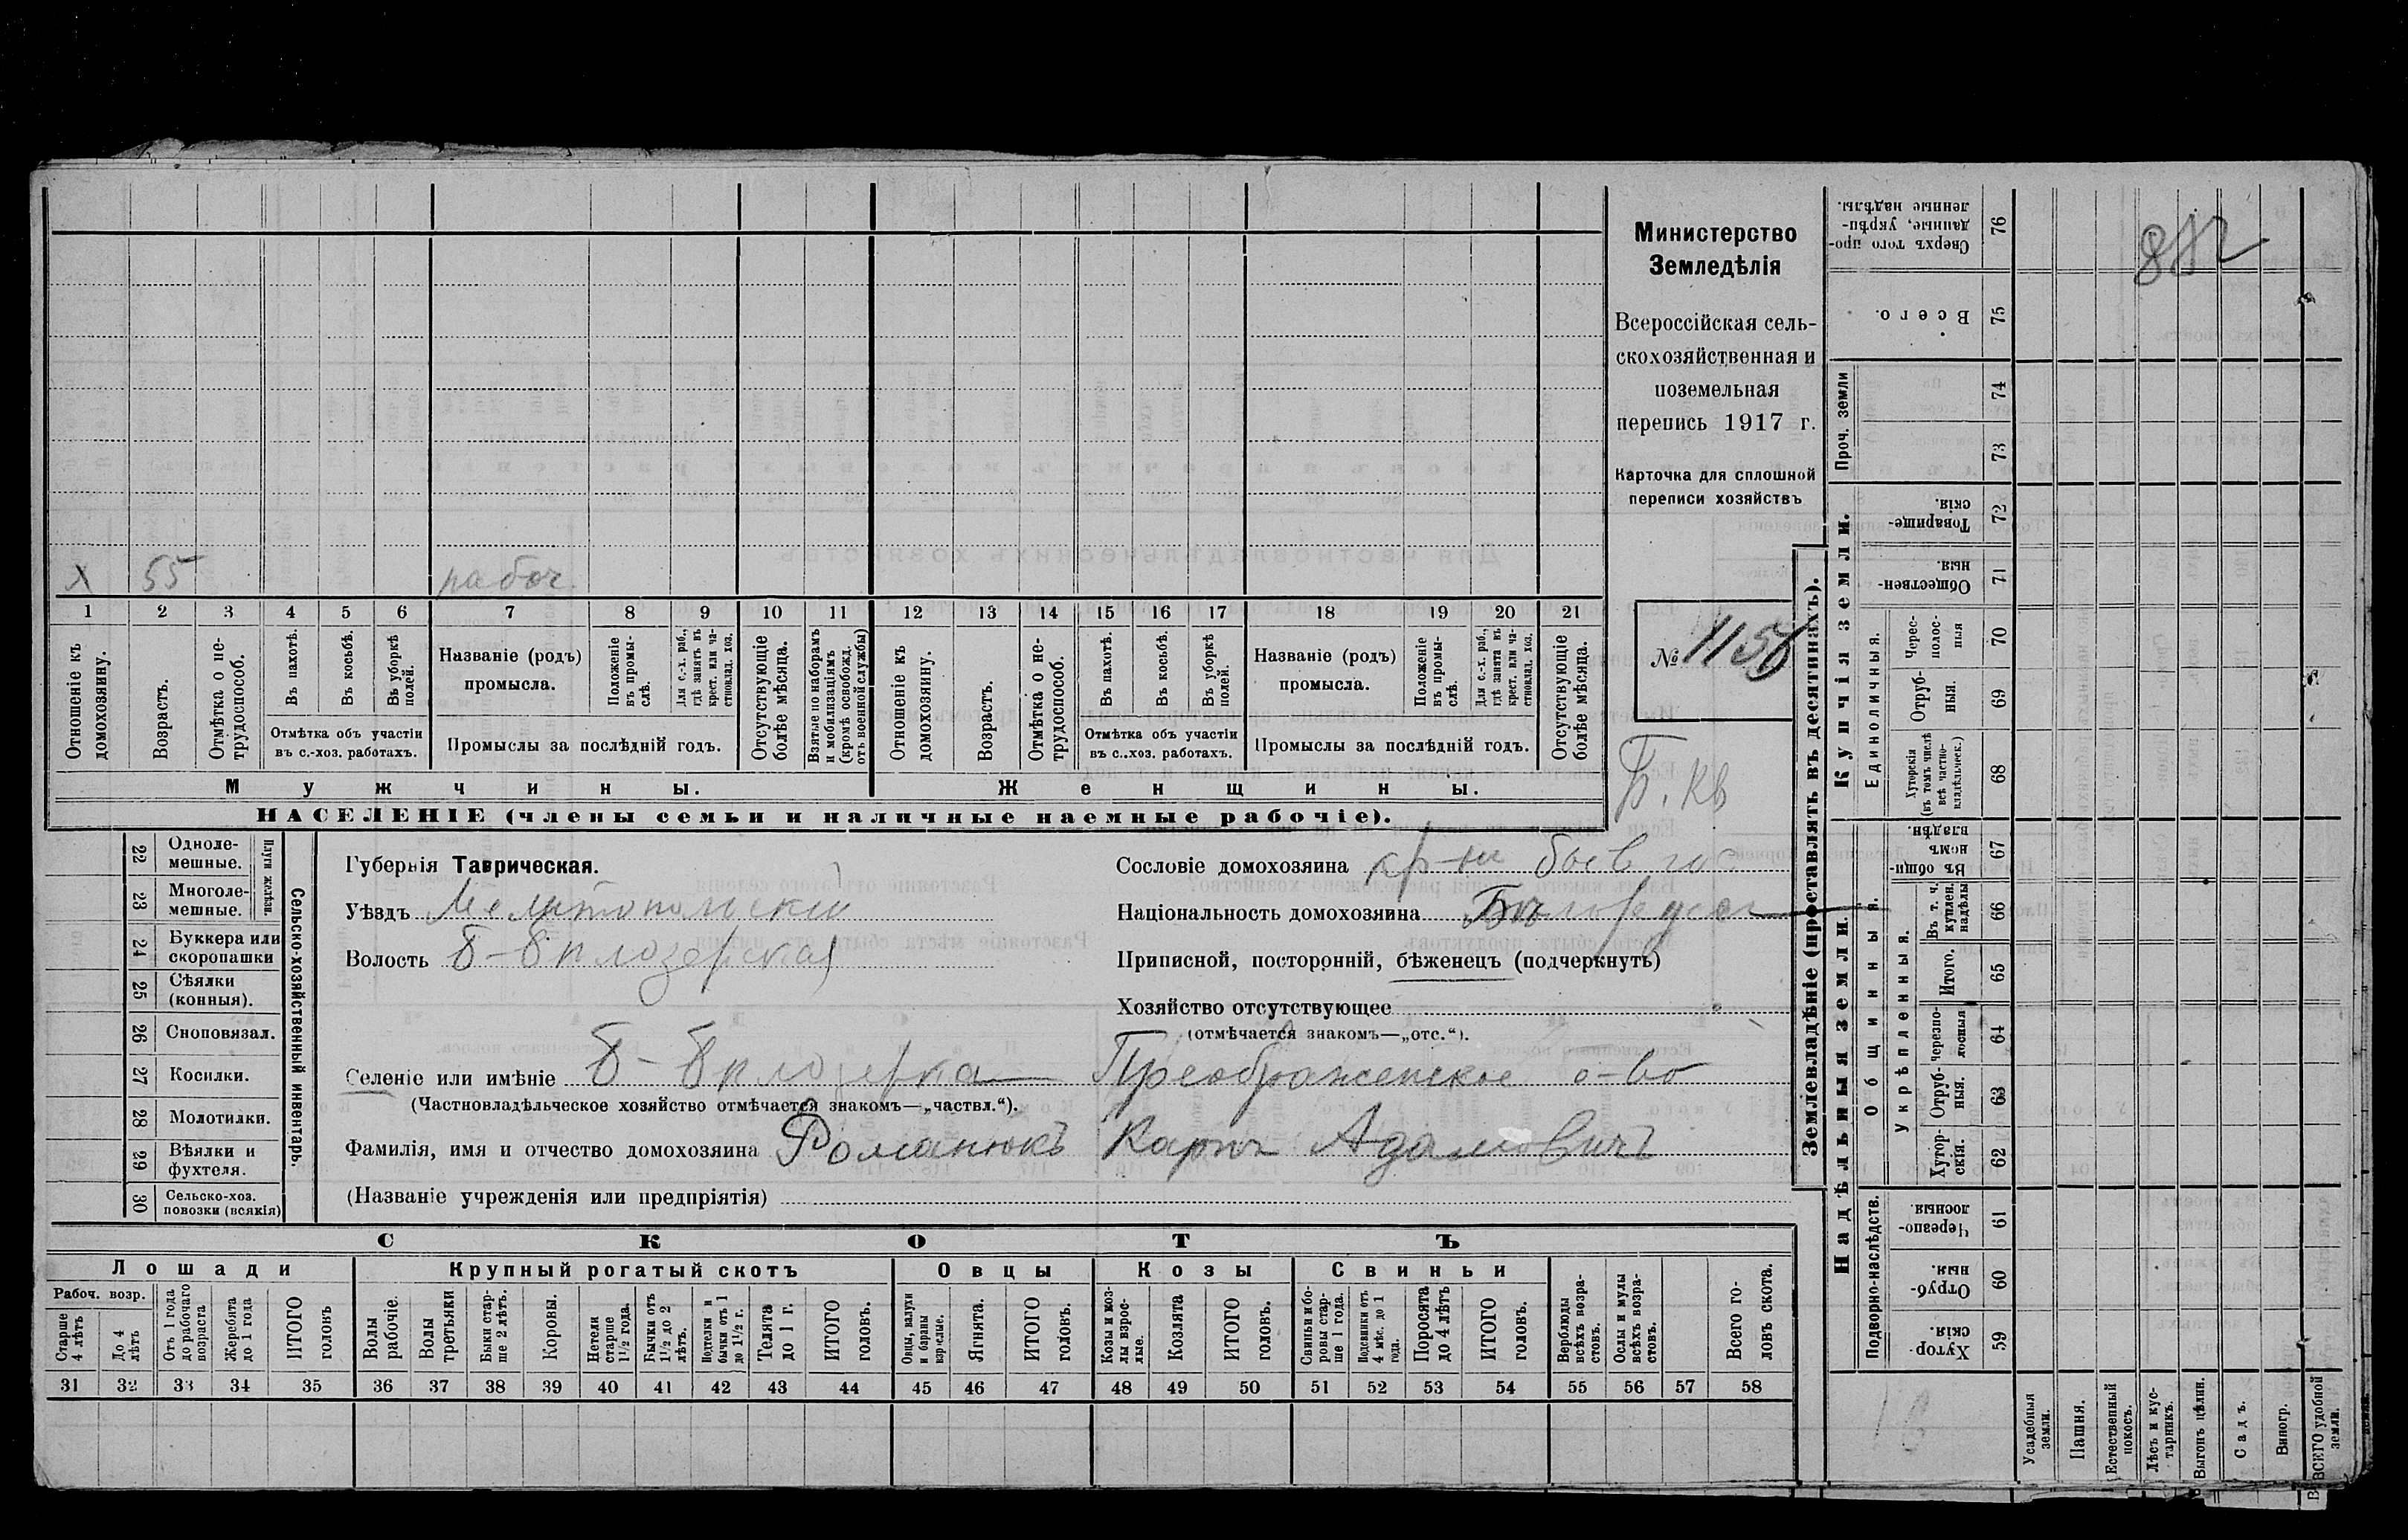 х 55 рабоч.
1 2 3 4 5 6 7 8 9 10 11 12 13 14 15 16 17 18 19 20 21
Отношеніе къ домохозяину.
Возрастъ.
Отмѣтка о нетрудоспособ.
Въ пахотѣ.
Въ косьбѣ.
Въ уборкѣ полей.
Отмѣтка объ участіи
въ с.-хоз. работахъ.
Названіе (родъ)
промысла.
Положеніе въ промыслѣ.
Для с.-х. раб., гдѣ занятъ въ крест. или частновлад. хоз.
Промыслы за послѣдній годъ.
Отсутствующіе болѣе мѣсяца.
Взятые по наборамъ и мобилизаціямъ (кромѣ освобожд. отъ военной службы)
Отношеніе къ домохозяину.
Возрастъ.
Отмѣтка о нетрудоспособ.
Въ пахотѣ.
Въ косьбѣ.
Въ уборкѣ полей.
Отмѣтка объ участіи
въ с.-хоз. работахъ.
Названіе (родъ)
промысла.
Положеніе въ промыслѣ.
Для с.-х. раб., гдѣ занята въ крест. или частновлад. хоз.
Промыслы за послѣдній годъ.
Отсутствующіе болѣе мѣсяца.
Мужчины. Женщины.
НАСЕЛЕНІЕ (члены семьи и наличные наемные рабочіе).
Министерство
Земледѣлія
Всероссійская сель-
скохозяйственная и
поземельная
перепись 1917 г.
Карточка для сплошной
переписи хозяйствъ
№ 1156
Б. Кв
22 Одноле-
мешные.
23 Многоле-
мешные.
Плуги желѣзн.
24 Буккера или
скоропашки
25 Сѣялки
(конныя).
26 Сноповязал.
27 Косилки.
28 Молотилки.
29 Вѣялки и
фухтеля.
30 Сельско-хоз.
повозки (всякія)
Сельско-хозяйственный инвентарь.
Губернія Таврическая.
Уѣздъ Мелитопольскій
Волость Б-Бѣлозерская
Селеніе или имѣніе Б-Бѣлозерка Преображенское о-во
(Частновладѣльческое хозяйство отмѣчается знакомъ—„частвл.“).
Фамилія, имя и отчество домохозяина Романюкъ Карпъ Адамовичъ
(Названіе учрежденія или предпріятія)
Сословіе домохозяина кр-нъ
Національность домохозяина
Приписной, посторонній, бѣженецъ (подчеркнуть)
Хозяйство отсутствующее
(отмѣчается знакомъ—„отс.“).
СКОТЪ
Лошади Крупный рогатый скотъ Овцы Козы Свиньи
Рабоч. возр.
Старше 4 лѣтъ
До 4 лѣтъ
Отъ 1 года до рабочаго возраста
Жеребята до 1 года
ИТОГО головъ
Волы рабочіе.
Волы третьяки
Быки старше 2 лѣтъ.
Коровы.
Нетели старше 1½ года.
Бычки отъ 1½ до 2 лѣтъ.
Подтелки и бычки отъ 1 до 1½ г.
Телята до 1 г.
ИТОГО головъ.
Овцы, валухи и бараны взрослые.
Ягнята.
ИТОГО головъ.
Козы и козлы взрослые.
Козлята
ИТОГО головъ.
Свиньи и боровы старше 1 года.
Подсвинки отъ 4 мѣс. до 1 года.
Поросята до 4 лѣтъ
ИТОГО головъ.
Верблюды всѣхъ возрастовъ.
Ослы и мулы всѣхъ возрастовъ.
Всего головъ скота.
31 32 33 34 35 36 37 38 39 40 41 42 43 44 45 46 47 48 49 50 51 52 53 54 55 56 57 58
Землевладѣніе (проставлять въ десятинахъ).
Купчія земли.
Надѣльныя земли.
Сверхъ того проданные, укрѣпленные надѣлы. 76
Всего. 75
Проч. земли
74
73
Товарищескія. 72
Общественныя. 71
Единоличныя.
Чересполосныя 70
Отрубныя. 69
Хуторскія (въ томъ числѣ всѣ частновладѣльческ.) 68
Общинныя.
Въ общинномъ владѣн. 67
Укрѣпленныя.
Въ т. ч. куплен. надѣлы 66
Итого. 65
черезполосныя 64
Отрубныя. 63
Хуторскія. 62
Подворно-наслѣдств.
Черезполосныя. 61
Отрубныя. 60
Хуторскія. 59
Усадебныя земли.
Пашня.
Естественный покосъ.
Лѣсъ и кустарникъ.
Выгонъ цѣлин.
Садъ.
Виногр.
ВСЕГО удобной земли.